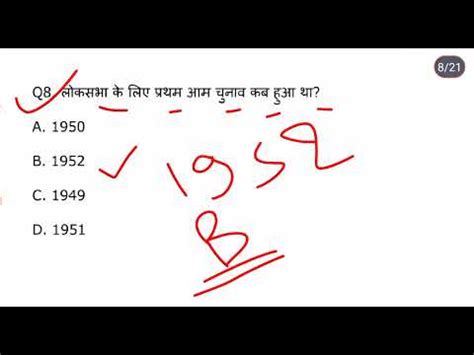 8/21
Q8. लोकसभा के लिए प्रथम आम चुनाव कब हुआ था?
A. 1950
B. 1952
1952
C. 1949
B
D. 1951